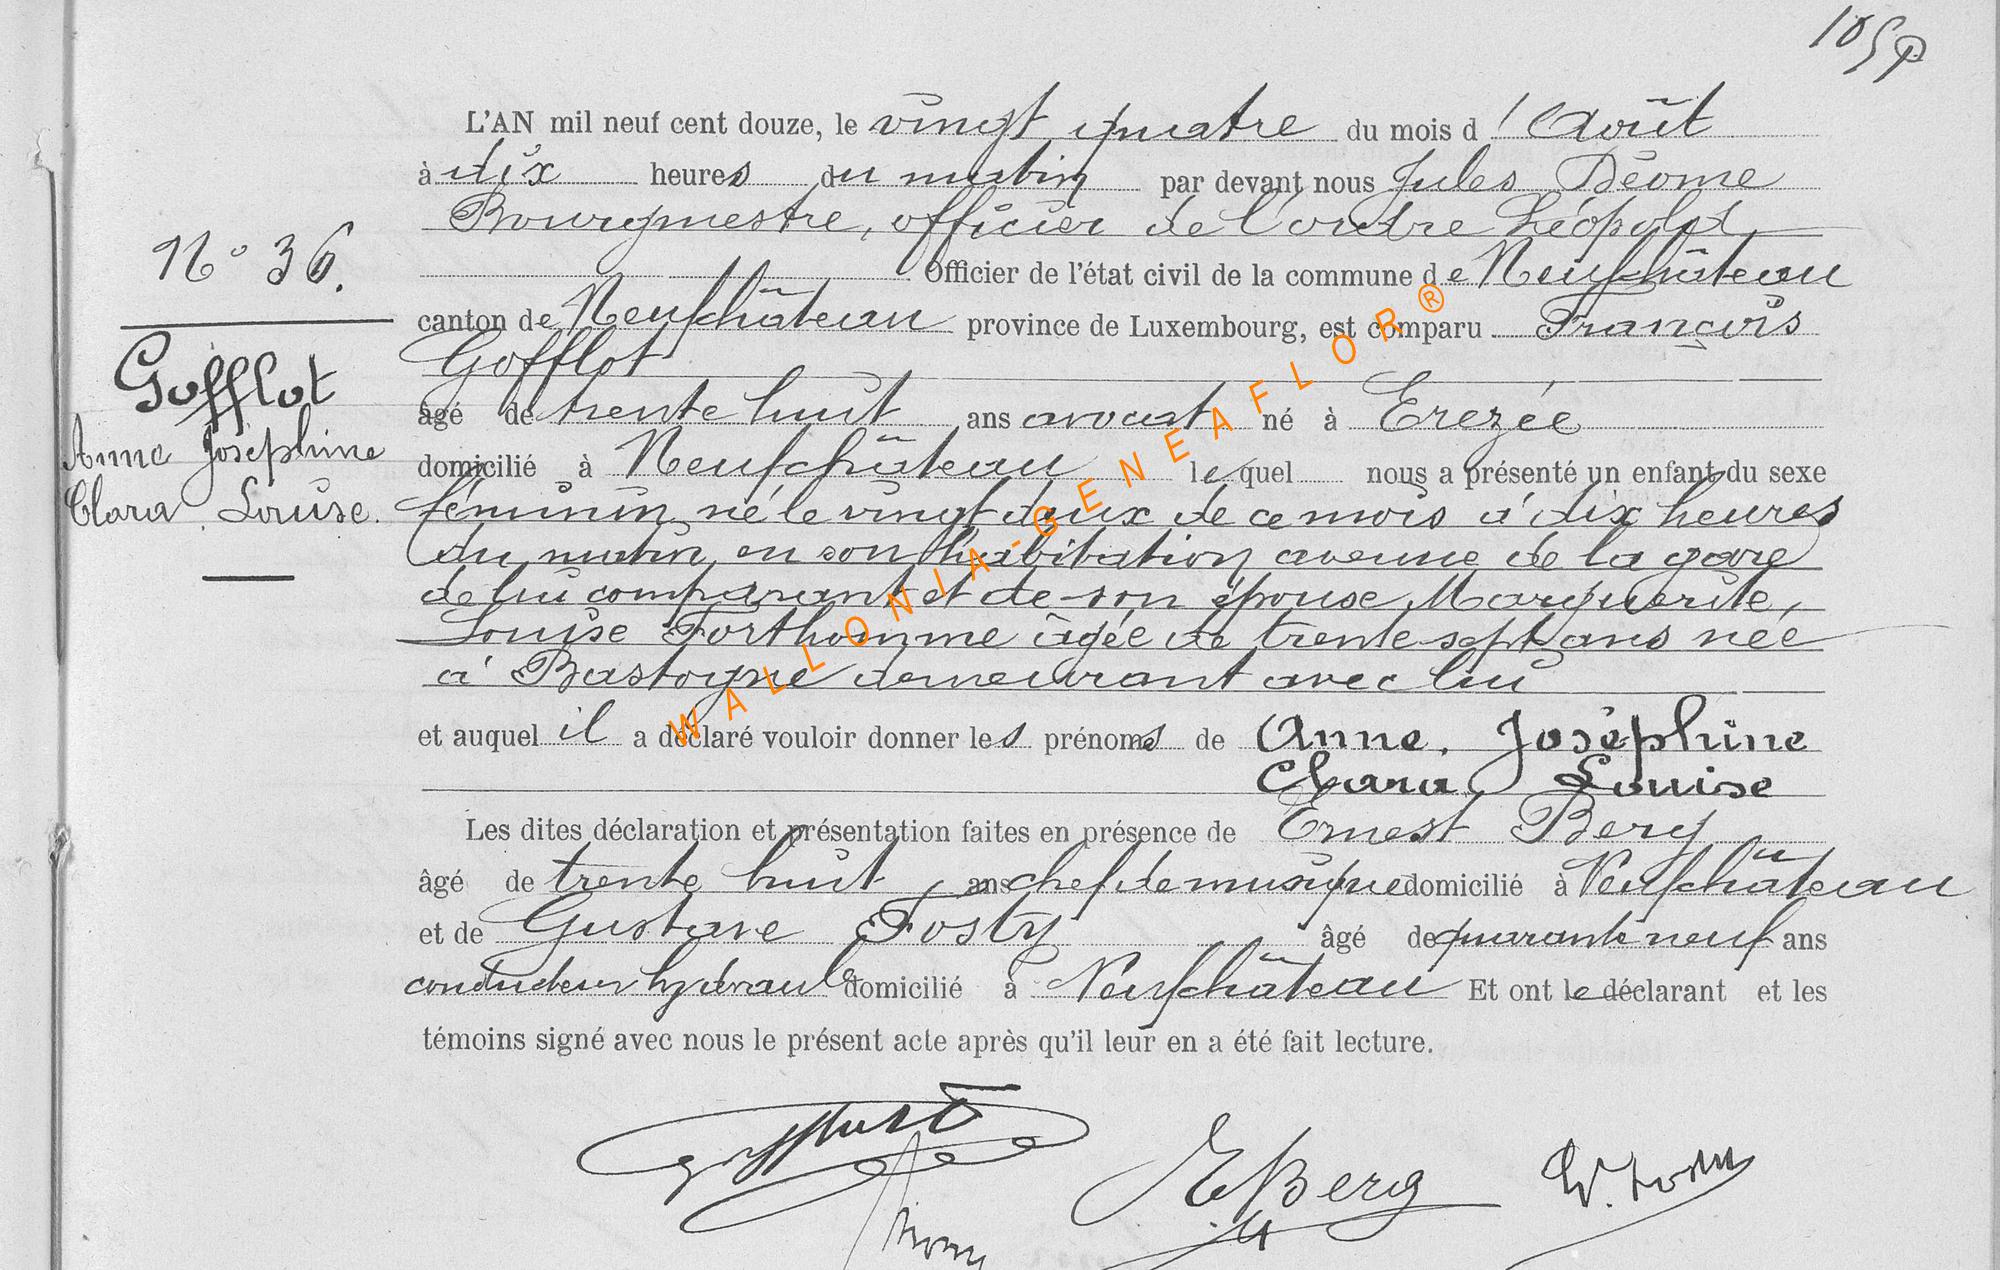 105
L'AN mil neuf cent douze, le vingt quatre du mois d'Août
à dix heures du matin par devant nous Jules Déome
Bourgmestre, officier de l'ordre Léopold
Officier de l'état civil de la commune de Neufchâteau
N° 36.
canton de Neufchâteau province de Luxembourg, est comparu François
Gofflot
Gofflot
âgé de trente huit ans avocat né à Erezée
Anne Joséphine
domicilié à Neufchâteau lequel nous a présenté un enfant du sexe
Clara Louise.
féminin né le vingt deux de ce mois à dix heures
du matin en son habitation avenue de la gare
de lui comparant et de son épouse Marguerite,
Louise Forthomme âgée de trente sept ans née
à Bastogne demeurant avec lui
et auquel il a déclaré vouloir donner les prénoms de Anne, Joséphine
Clara Louise
Les dites déclaration et présentation faites en présence de Ernest Berg
âgé de trente huit, ans chef de musique domicilié à Neufchâteau
et de Gustave Fosty âgé de quarante neuf ans
conducteur hydraul domicilié à Neufchâteau Et ont le déclarant et les
témoins signé avec nous le présent acte après qu'il leur en a été fait lecture.
Gofflot
EBerg
WALLONIA-GENEAFLOR®